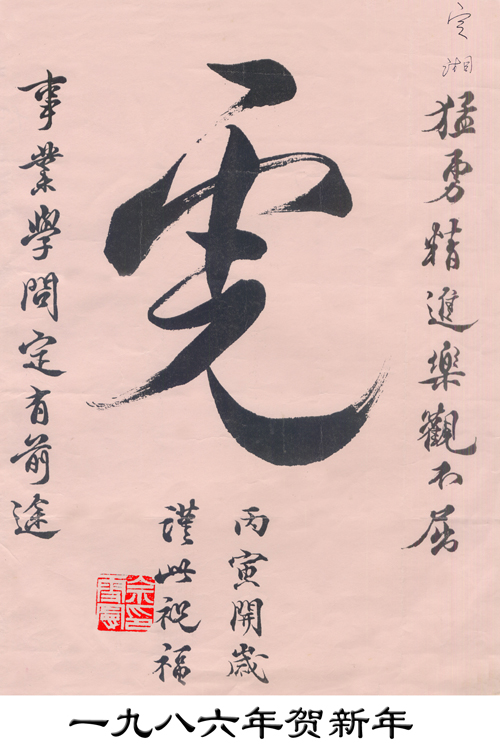 定湘
猛勇精進樂觀不屈
虎
事業學問定有前途
丙寅開歲
謹此祝福
一九八六年贺新年